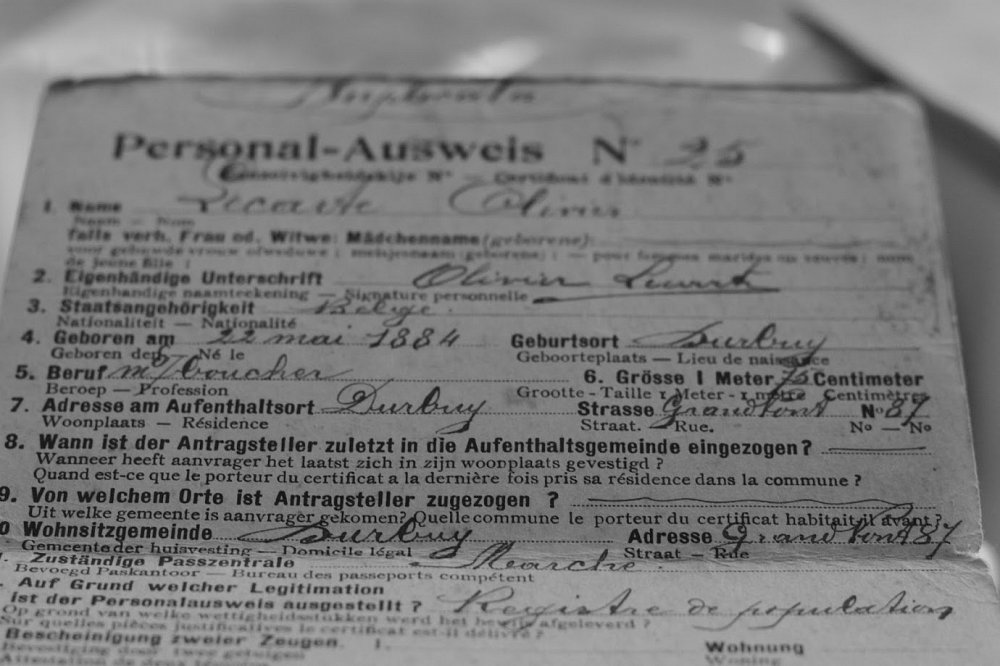 Duplicata
Personal-Ausweis Nr 25
Eenzelvigheidsbewijs Nr — Certificat d'Identité Nr
1. Name Olivier
Naam — Nom
falls verh. Frau od. Witwe: Mädchenname (geborene):
de jeune fille :
2. Eigenhändige Unterschrift Olivier
Eigenhandige naamteekening — Signature personnelle
3. Staatsangehörigkeit Belge.
Nationaliteit — Nationalité
4. Geboren am 22 mai 1884 Geburtsort Durbuy
Geboren den Né le Geboorteplaats — Lieu de naissance
5. Beruf md boucher 6. Grösse 1 Meter 75 Centimeter
Beroep — Profession Grootte - Taille 1 Meter - 1 mètre Centimètres
7. Adresse am Aufenthaltsort Durbuy Strasse Grand Pont No 87
Woonplaats — Résidence Straat. — Rue. No — No
8. Wann ist der Antragsteller zuletzt in die Aufenthaltsgemeinde eingezogen?
Wanneer heeft aanvrager het laatst zich in zijn woonplaats gevestigd ?
Quand est-ce que le porteur du certificat a la dernière fois pris sa résidence dans la commune ?
9. Von welchem Orte ist Antragsteller zugezogen ?
Uit welke gemeente is aanvrager gekomen? Quelle commune le porteur du certificat habitait il avant?
0 Wohnsitzgemeinde Durbuy Adresse Grand Pont 87
Gemeente der huisvesting — Domicile légal Straat — Rue
Zuständige Passzentrale Marche.
Bevoegd Paskantoor — Bureau des passeports compétent
Auf Grund welcher Legitimation
ist der Personalausweis ausgestellt ? Registre de population
Op grond van welke wettigheidsstukken werd het bewijs afgeleverd ?
Sur quelles pièces justificatives le certificat est-il délivré ?
Bescheinigung zweier Zeugen. 1. Wohnung
Bevestiging door twee getuigen Woning
Attestation de deux témoins